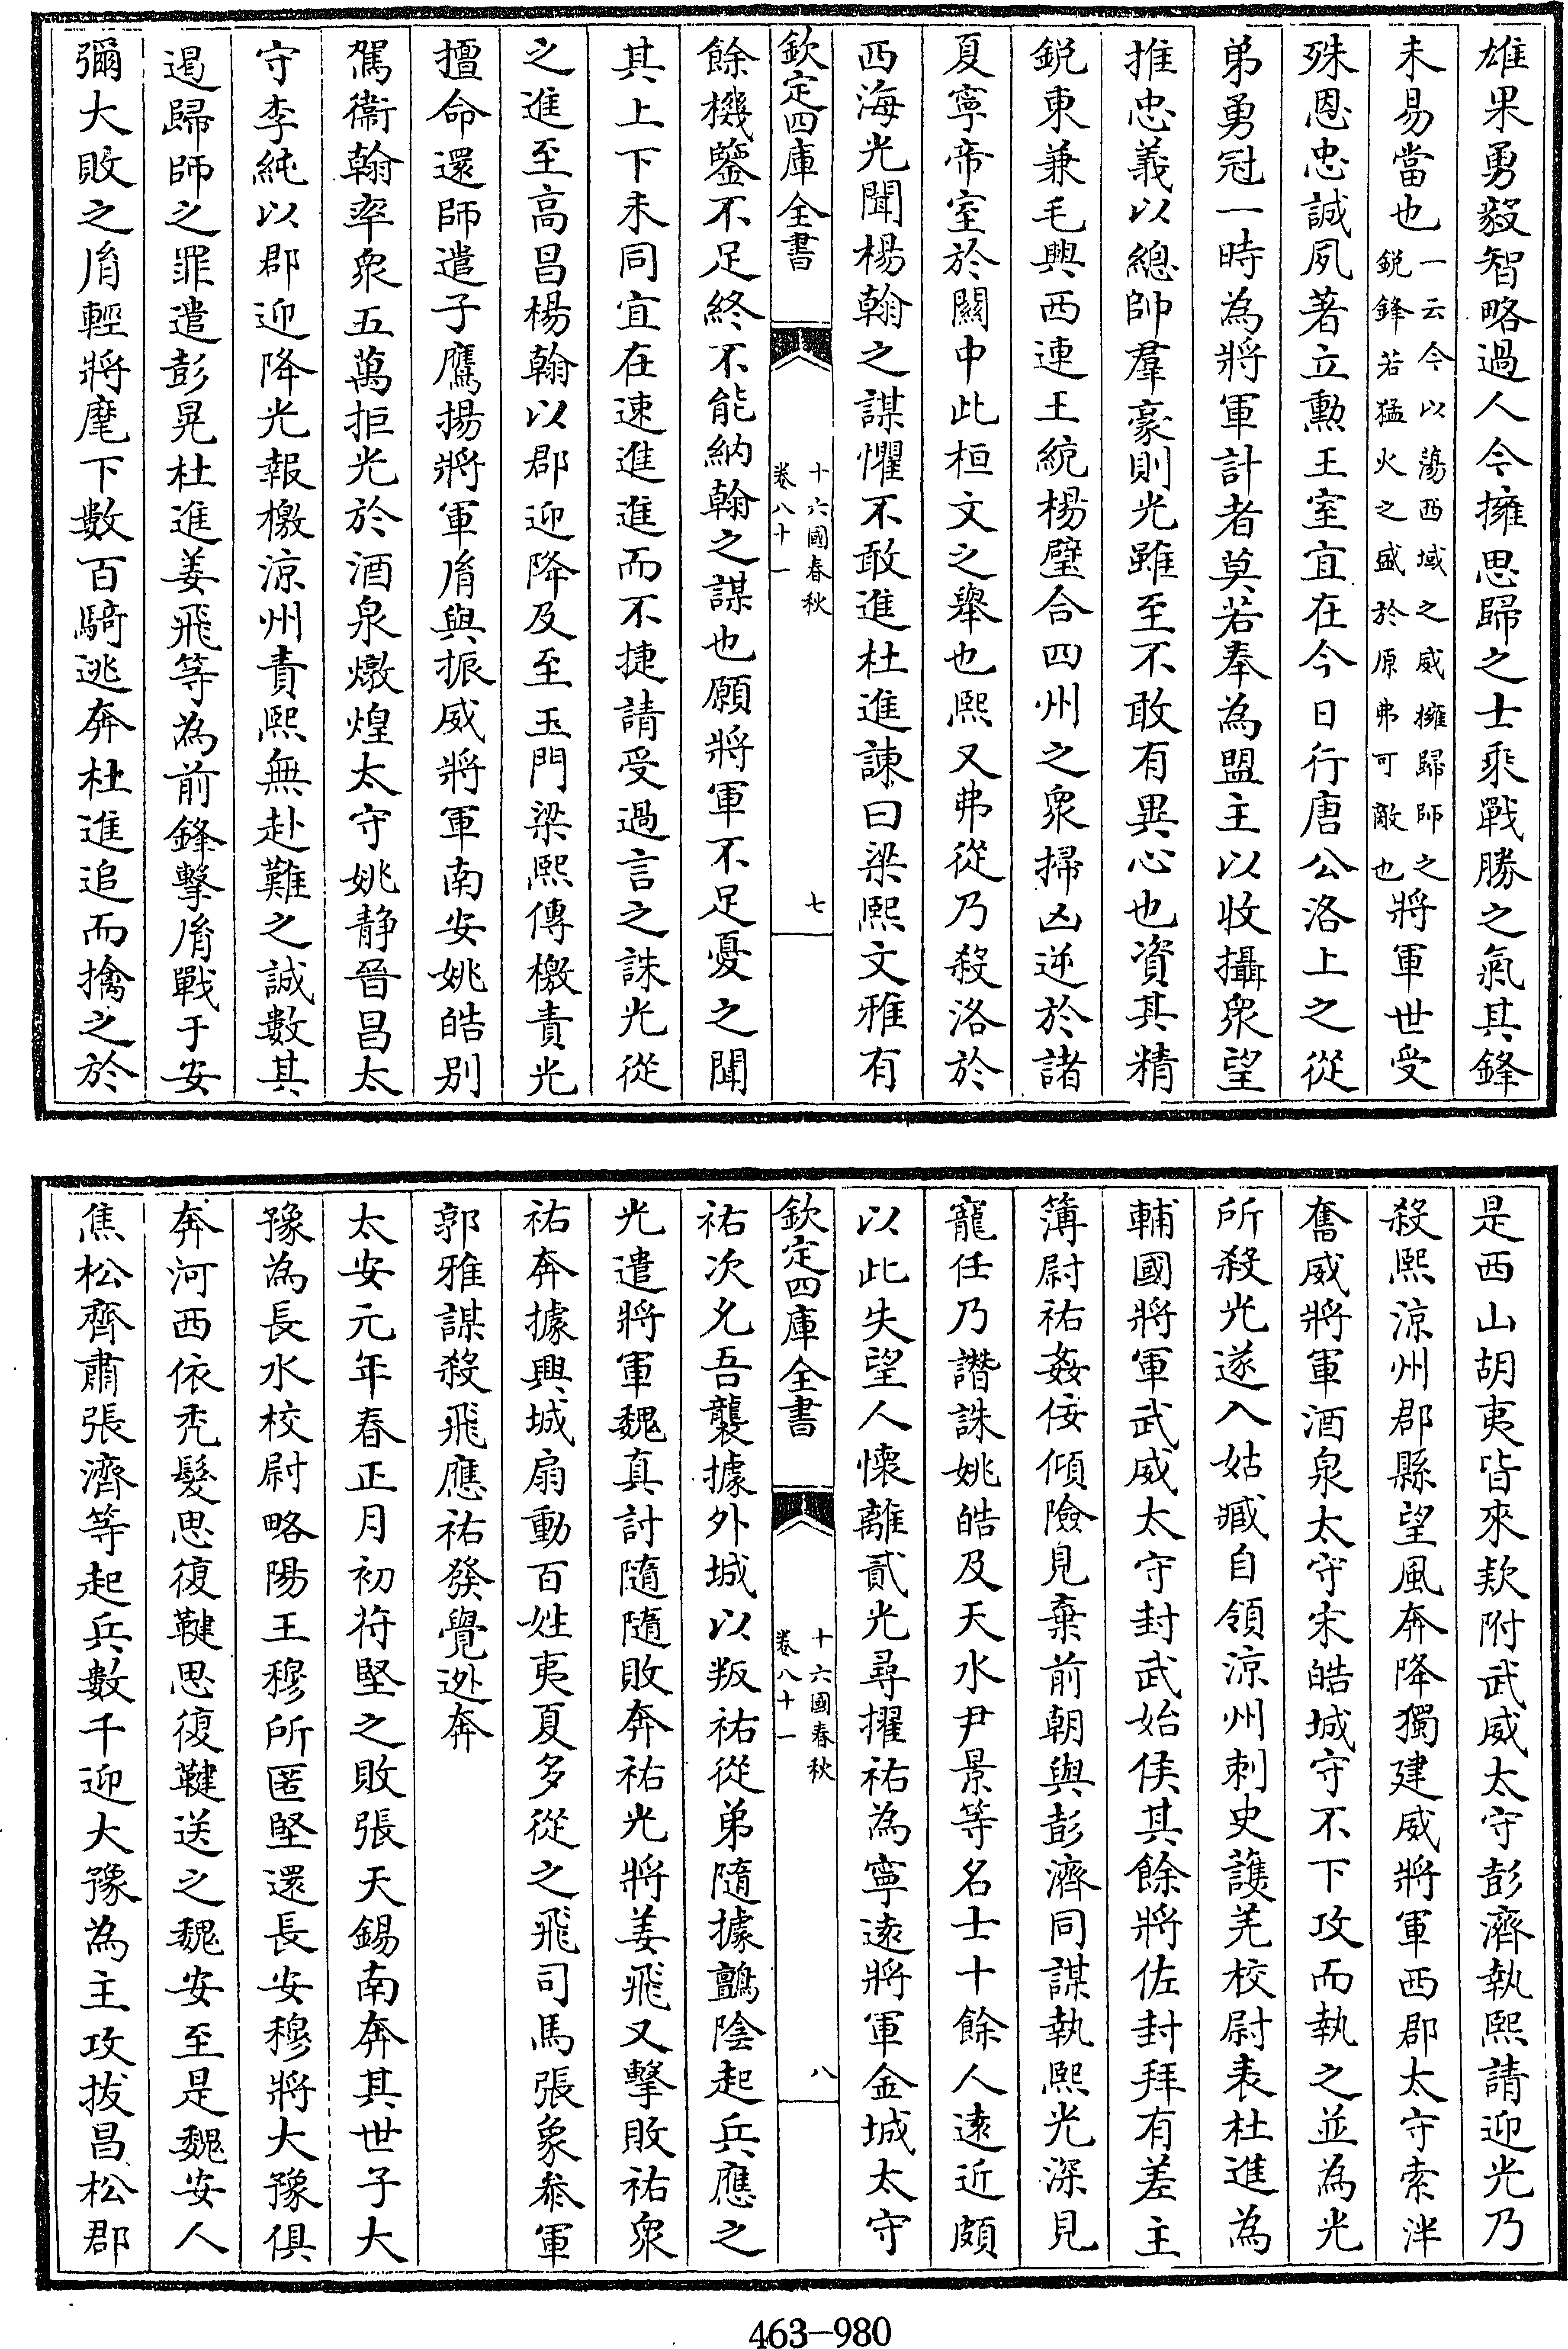 雄果勇毅智略過人今擁思歸之士乘戰勝之氣其鋒
未易當也一云今以蕩西域之威擁歸師之銳鋒若猛火之盛於原弗可敵也將軍世受
殊恩忠誠夙著立勳王室宜在今日行唐公洛上之從
弟勇冠一時為將軍計者莫若奉為盟主以收攝衆望
推忠義以總帥羣豪則光雖至不敢有異心也資其精
銳東兼毛興西連王統楊璧合四州之衆掃凶逆於諸
夏寧帝室於關中此桓文之舉也熙又弗從乃殺洛於
西海光聞楊翰之謀懼不敢進杜進諫曰梁熙文雅有
欽定四庫全書
十六國春秋
卷八十一
七
餘機鑒不足終不能納翰之謀也願將軍不足憂之聞
其上下未同宜在速進進而不捷請受過言之誅光從
之進至高昌楊翰以郡迎降及至玉門梁熙傳檄責光
擅命還師遣子鷹揚將軍胤與振威將軍南安姚皓別
駕衞翰率衆五萬拒光於酒泉燉煌太守姚静晉昌太
守李純以郡迎降光報檄涼州責熙無赴難之誠數其
遏歸師之罪遣彭晃杜進姜飛等為前鋒擊胤戰于安
彌大敗之胤輕將麾下數百騎逃奔杜進追而擒之於
是西山胡夷皆來欵附武威太守彭濟執熙請迎光乃
殺熙涼州郡縣望風奔降獨建威將軍西郡太守索泮
奮威將軍酒泉太守宋皓城守不下攻而執之並為光
所殺光遂入姑臧自領涼州刺史護羌校尉表杜進為
輔國將軍武威太守封武始侯其餘將佐封拜有差主
簿尉祐姦佞傾險見棄前朝與彭濟同謀執熙光深見
寵任乃譖誅姚皓及天水尹景等名士十餘人遠近頗
以此失望人懷離貳光尋擢祐為寧遠將軍金城太守
欽定四庫全書
十六國春秋
卷八十一
八
祐次允吾襲據外城以叛祐從弟隨據鸇陰起兵應之
光遣將軍魏真討隨隨敗奔祐光將姜飛又擊敗祐衆
祐奔據興城扇動百姓夷夏多從之飛司馬張象叅軍
郭雅謀殺飛應祐發覺逃奔
太安元年春正月初苻堅之敗張天錫南奔其世子大
豫為長水校尉略陽王穆所匿堅還長安穆將大豫俱
奔河西依禿髮思復鞬思復鞬送之魏安至是魏安人
焦松齊肅張濟等起兵數千迎大豫為主攻拔昌松郡
463-980